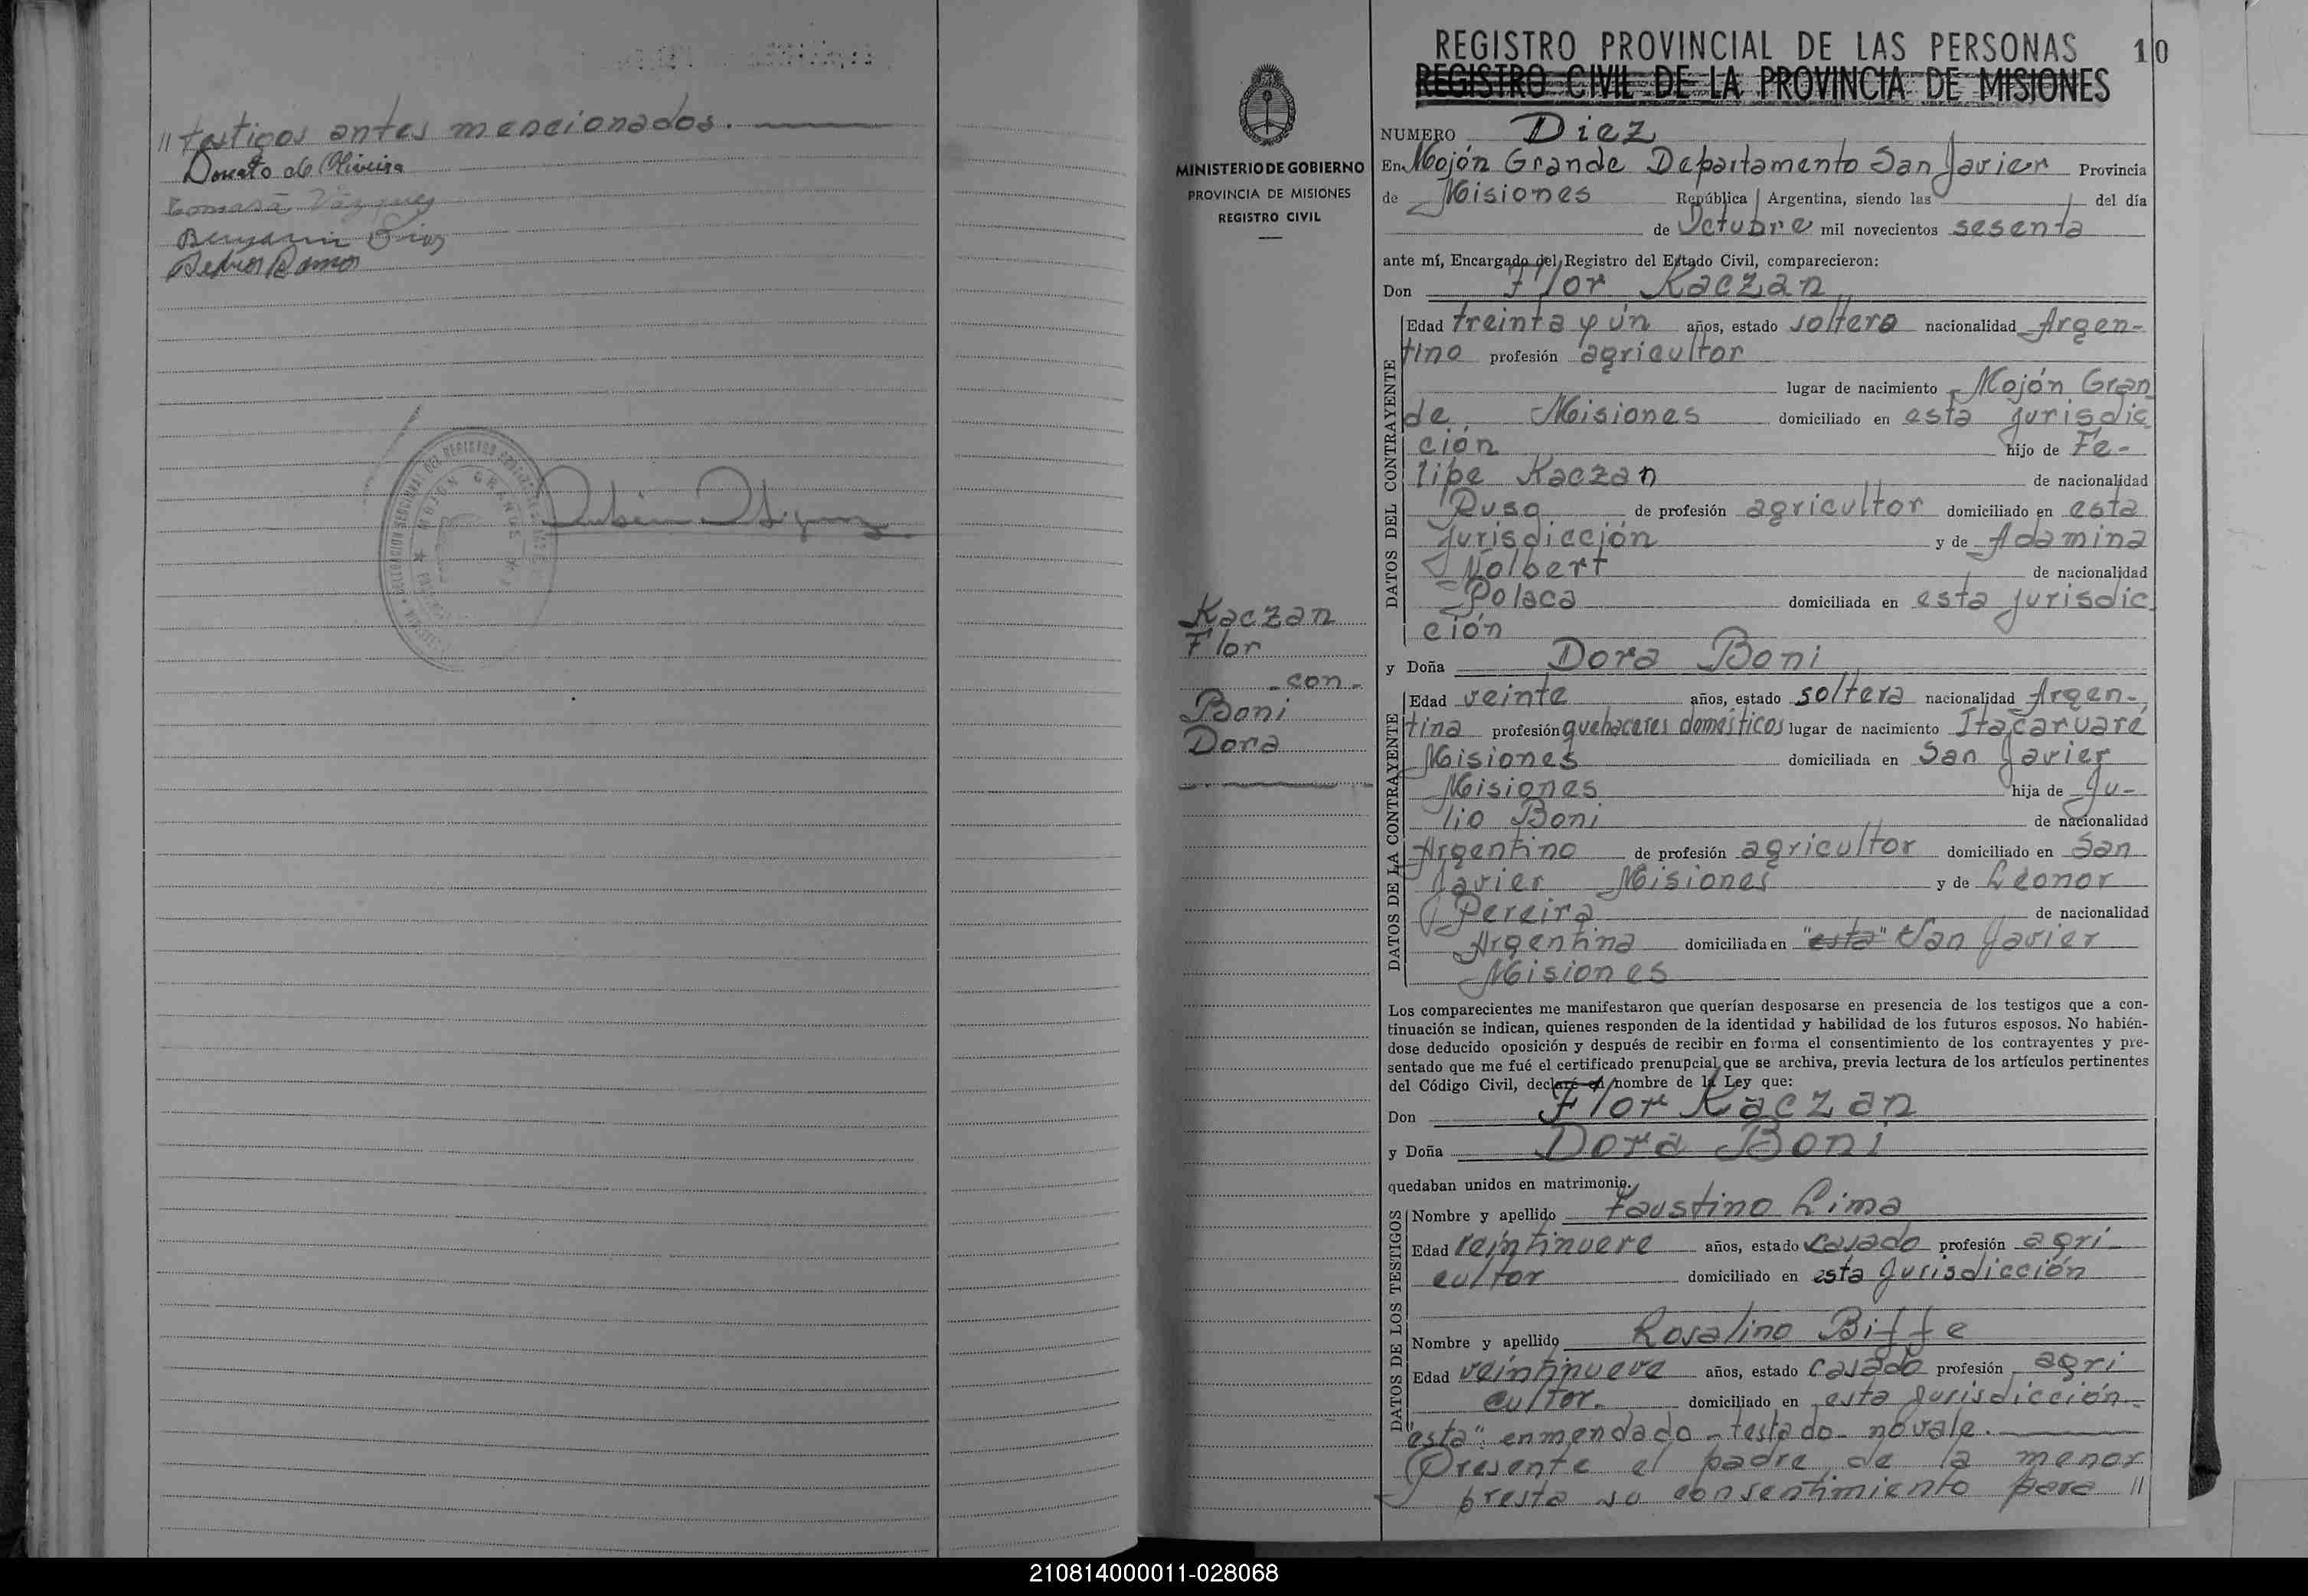 " testigos antes mencionados.
Donato de Oliveira
Tomasa Vazquez
Pedro Ramos
MOJON GRANDE
REGISTRO PROVINCIAL DE LAS PERSONAS 10
REGISTRO CIVIL DE LA PROVINCIA DE MISIONES
MINISTERIO DE GOBIERNO
PROVINCIA DE MISIONES
REGISTRO CIVIL
Kaczan
Flor
- con -
Boni
Dora
NUMERO Diez
En Mojón Grande Departamento San Javier Provincia
de Misiones República Argentina, siendo las del día
de Octubre mil novecientos sesenta
ante mí, Encargado del Registro del Estado Civil, comparecieron:
Don Flor Kaczan
DATOS DEL CONTRAYENTE
Edad treinta y un años, estado soltero nacionalidad Argen-
tino profesión agricultor
lugar de nacimiento Mojón Gran
de Misiones domiciliado en esta jurisdic
ción hijo de Fe-
lipe Kaczan de nacionalidad
Ruso de profesión agricultor domiciliado en esta
jurisdicción y de Adamina
Nolbert de nacionalidad
Polaca domiciliada en esta jurisdic
ción
y Doña Dora Boni
DATOS DE LA CONTRAYENTE
Edad veinte años, estado soltera nacionalidad Argen-
tina profesión quehaceres domésticos lugar de nacimiento Itacaruaré
Misiones domiciliada en San Javier
Misiones hija de Ju-
lio Boni de nacionalidad
Argentino de profesión agricultor domiciliado en San
Javier Misiones y de Leonor
Pereira de nacionalidad
Argentina domiciliada en "esta" San Javier
Misiones
Los comparecientes me manifestaron que querían desposarse en presencia de los testigos que a con-
tinuación se indican, quienes responden de la identidad y habilidad de los futuros esposos. No habién-
dose deducido oposición y después de recibir en forma el consentimiento de los contrayentes y pre-
sentado que me fué el certificado prenupcial que se archiva, previa lectura de los artículos pertinentes
del Código Civil, declaré en nombre de la Ley que:
Don Flor Kaczan
y Doña Dora Boni
quedaban unidos en matrimonio.
DATOS DE LOS TESTIGOS
Nombre y apellido Faustino Lima
Edad veintinueve años, estado casado profesión agri-
cultor domiciliado en esta jurisdicción
Nombre y apellido Rosalino Biffe
Edad veintinueve años, estado casado profesión agri
cultor. domiciliado en esta jurisdicción.-
"esta": enmendado - testado - no vale.
Presente el padre de la menor
presta su consentimiento para "
210814000011-028068